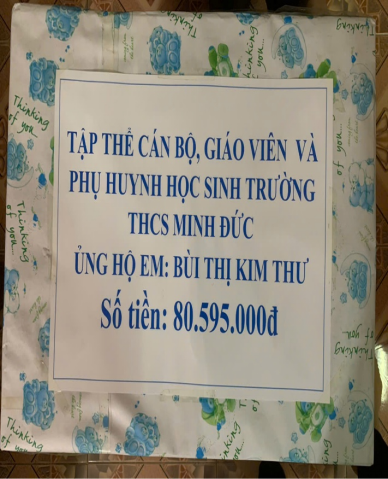 TẬP THỂ CÁN BỘ, GIÁO VIÊN VÀ
PHỤ HUYNH HỌC SINH TRƯỜNG
THCS MINH ĐỨC
ỦNG HỘ EM: BÙI THỊ KIM THƯ
Số tiền: 80.595.000đ
Thinking
of you...
Thinking
of you...
Thinking
of you...
Thinking
of you...
Thinking
of you...